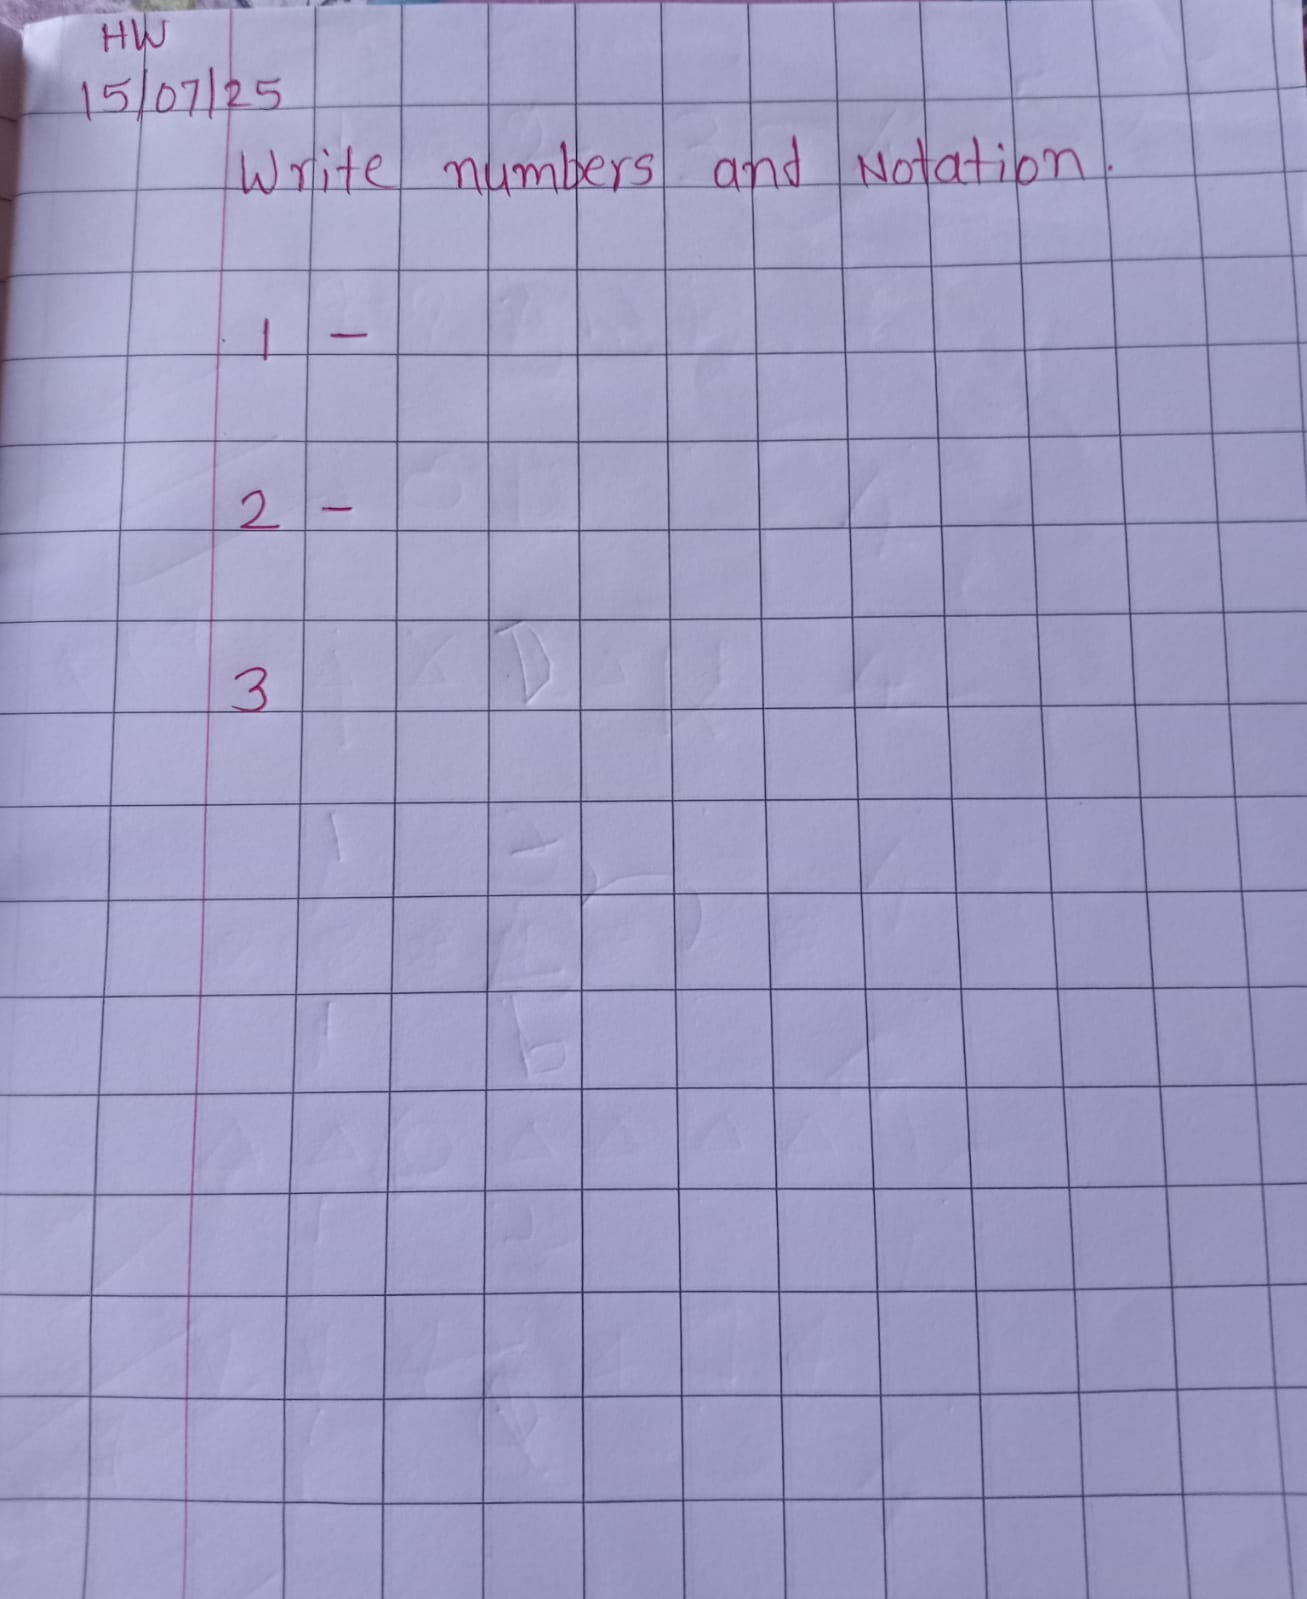 HW
15/07/25
Write numbers and Notation.
1 -
2 -
3